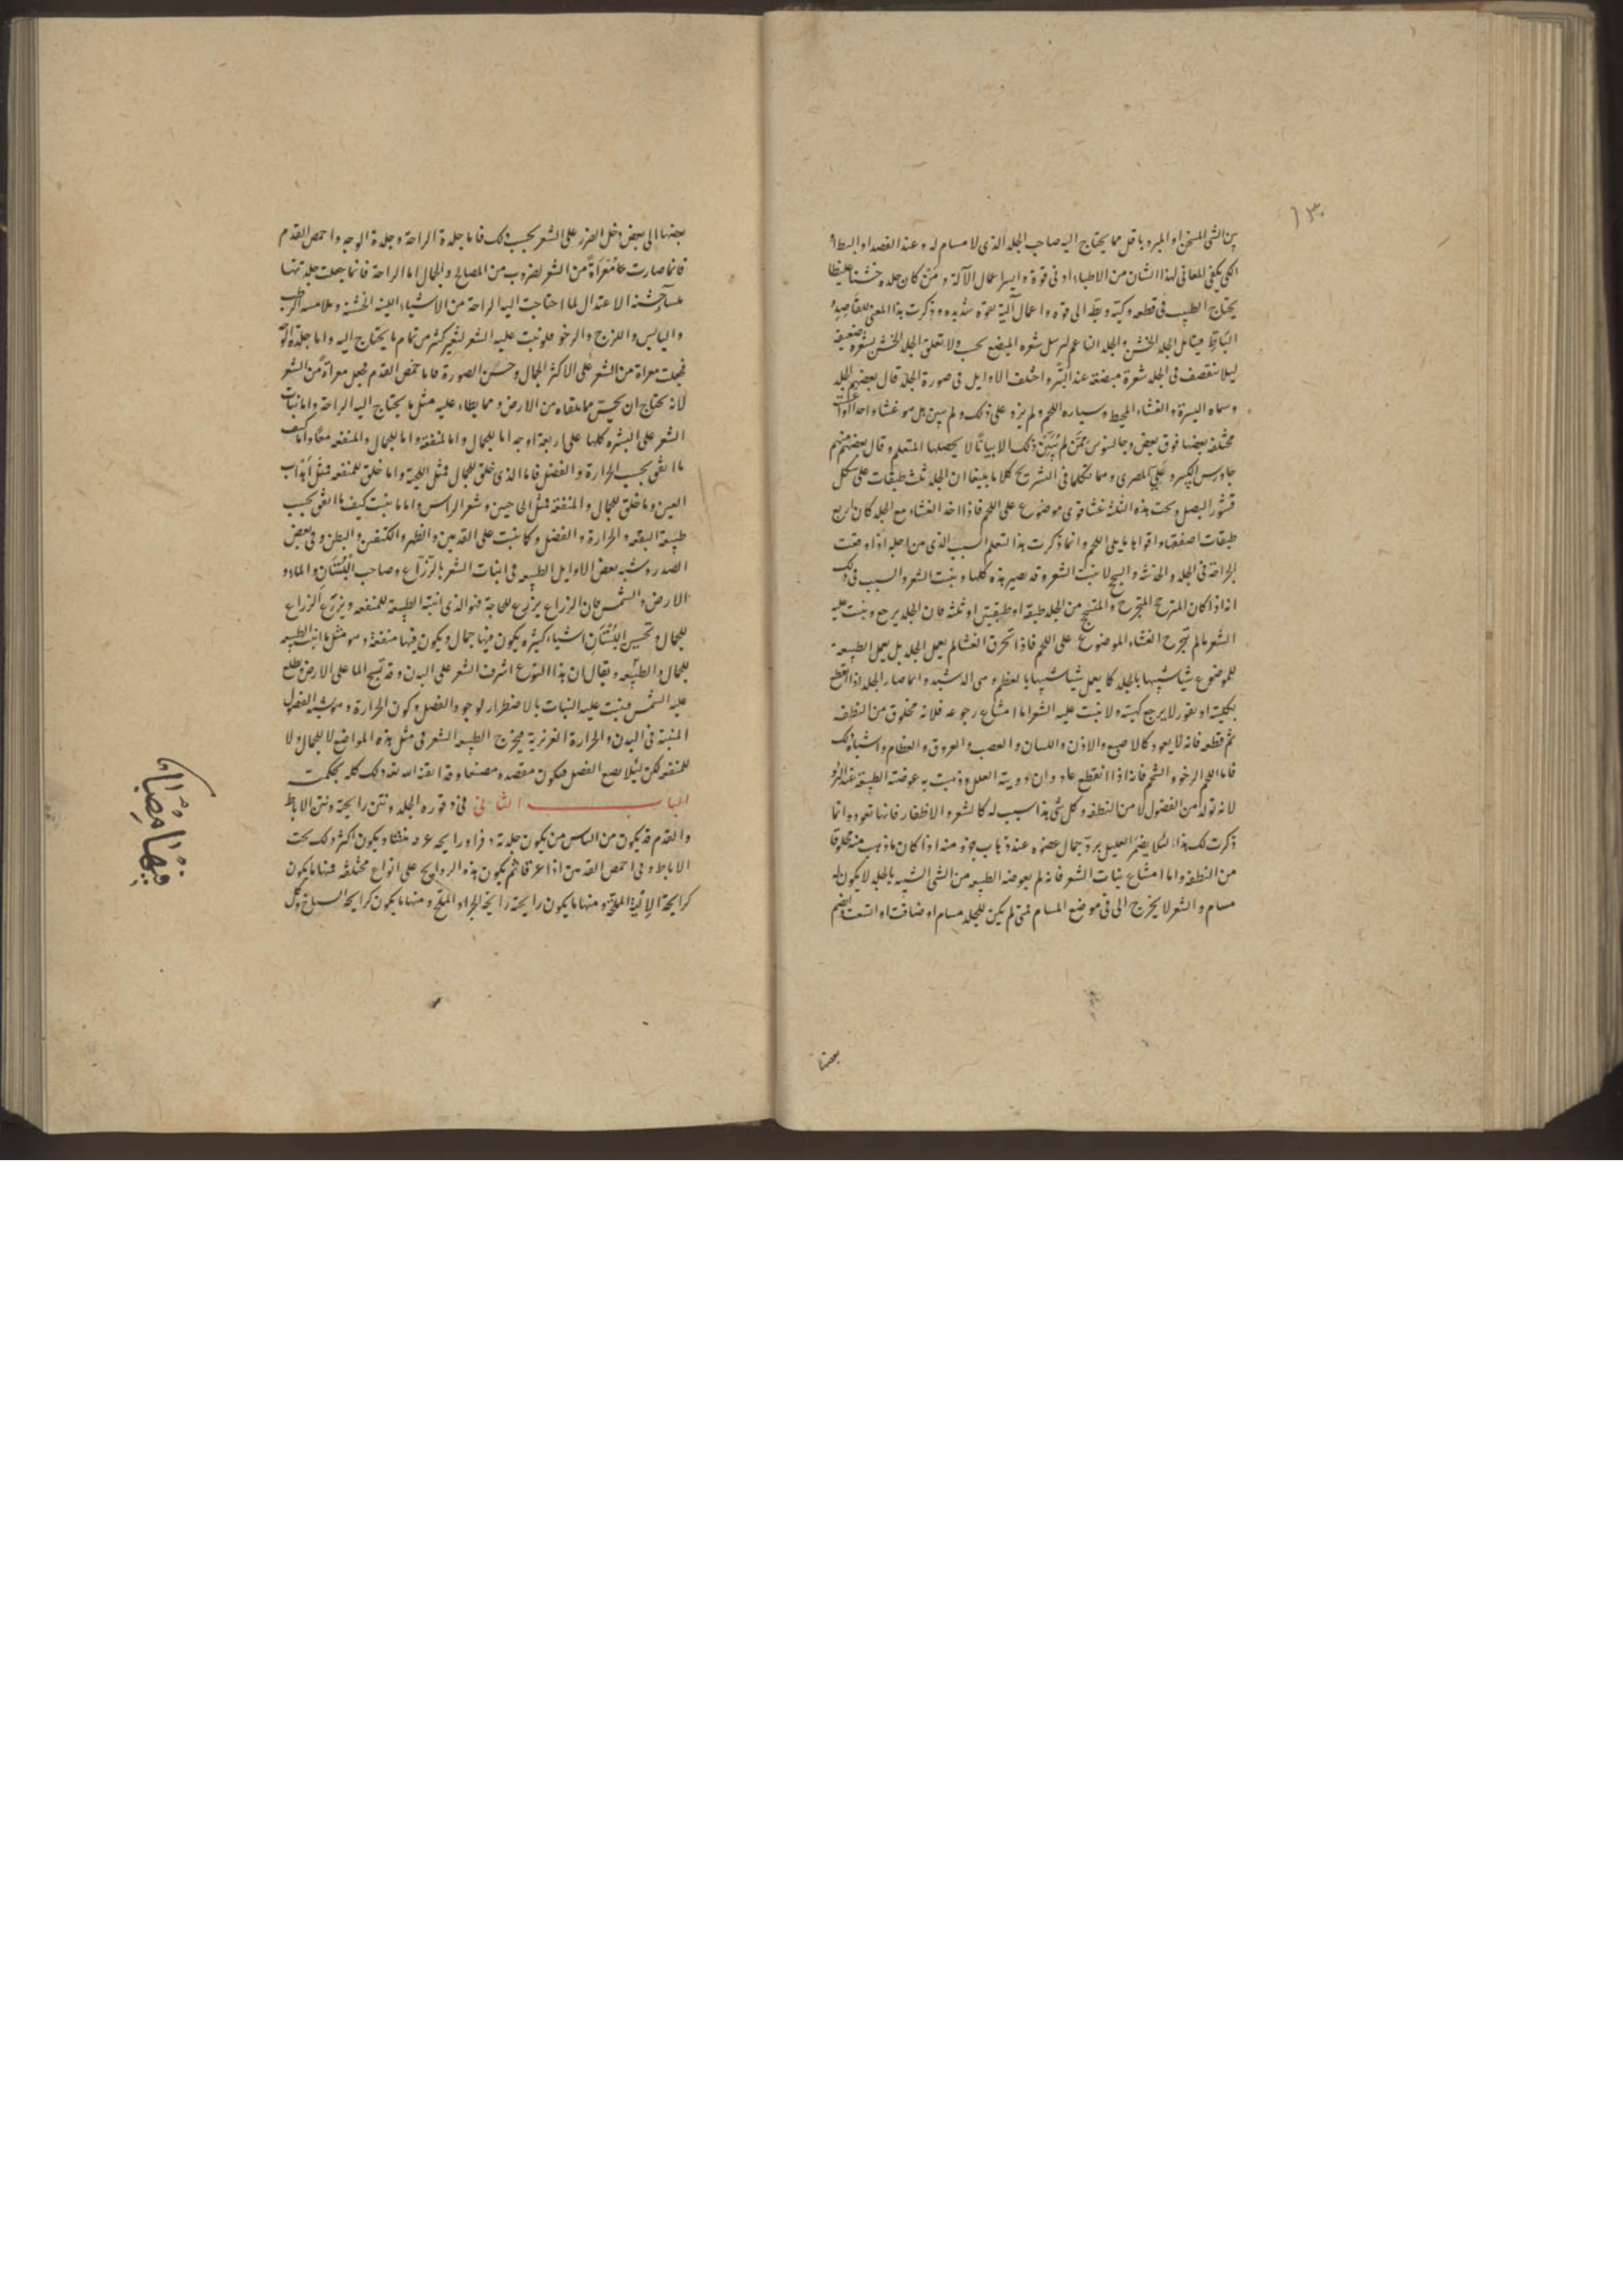 ١٣٠
بين الشى المسخن او المبرد باقل مما يحتاج اليه صاحب الجلد الذى لا مسام له وعند الفصد او البط او
الكى يكفى المعانى لهذا الشان من الاطباء ادنى قوة وايسر اعمال الآلة ومن كان جلده خشنا غليظا
يحتاج الطبيب فى قطعه وكيه وبطه الى قوه واعمال آلية بقوه شديده وذكرت هذا المعنى للفاصد و
الباط الجلد الخشن والجلد الناعم شعره المبضع الجلد الخشن بشعره ضعيفة
ليلا تنقصف فى الجلد شعرة مبضعه عند واختلف الاوايل فى صورة الجلد قال بعضهم الجلد
وسماه البشرة والغشاء المحيط وسياره اللحم ولم يزد على ذلك ولم يبين هل هو غشاء واحد او
مختلفه بعضها فوق بعض وجالينوس ممن لم يبين ذلك الا بيانا لا يحصلها المتعلم وقال بعضهم منهم
الكبير وعلى المصرى ومما تكلما فى التشريح كلاما بليغا ان الجلد ثلث طبقات على شكل
قشور البصل وتحت هذه الثلثة غشا قوى موضوع على اللحم فاذا اخذ الغشاء مع الجلد كان اربع
طبقات اصفقها واقواها ما يلى اللحم وانما ذكرت هذا لتعلم السبب الذى من اجله اذا وقعت
الجراحة فى الجلد والسحج لا ينبت الشعر وقد يصير هذه كلها وينبت الشعر والسبب فى ذلك
انه اذا كان المنجرح والمتسحج من الجلد طبقه او طبقتين او ثلثه فان الجلد يرجع وينبت عليه
الشعر ما لم يتجرح الغشاء الموضوع على اللحم فاذا تخرق الغشا لم يعمل الجلد بل يعمل الطبيعة
للموضوع شيا شبيها بالجلد كما يعمل شيا شبيها بالعظم وهى الدشبد وانما صار الجلد اذا انقطع
بكليته او بقور لا يرجع كهيته ولا ينبت عليه الشعر اما امتناع رجوعه فلانه مخلوق من النطفه
ثم قطعه فانه لا يعود كالاصبع والاذن واللسان والعصب والعروق والعظام واشباه ذلك
فاما اللحم الرخو والشحم فانه اذا انقطع عاد وان اذويته العلل وذهبت به عوضته الطبيعة عند البرؤ
لانه تولد من الفضول لا من النطفه وكل شى هذا سبيله كالشعر والاظفار فانها تعود وانما
ذكرت لك هذا ليلا يضمن العليل برد جمال عضوه عند ذهاب جزو منه اذا كان ما ذهب منه مخلوقا
من النطفه واما امتناع نبات الشعر فانه لم يعوضه الطبيعه من الشى الشبيه بالجلد لا يكون له
مسام والشعر لا يخرج الا فى موضع المسام فمتى لم يكن للجلد مسام او ضاقت او اتسعت وانضم
بعضها
بعضها الى بعض دخل الضرر على الشعر بحسب ذلك فاما جلدة الراحة وجلدة الوجه واخمص القدم
فانما صارت معراة من الشعر لضروب من المصالح والجمال اما الراحة فانما جعلت جلدتها
ملسا خشنة الاعتدال لما احتاجت اليه الراحة من الاشياء اللينه الخشنه وملامسه الرطب
واليابس واللزج والرخو فلو نبت عليه الشعر لتغير كثير من تمام ما يحتاج اليه واما جلدة الوجه
فجعلت معراة من الشعر على الاكثر للجمال وحسن الصورة فاما اخمص القدم فجعل معراة من الشعر
لانه يحتاج ان يحس مما يلقاه من الارض ومما يطاء عليه مثل ما يحتاج اليه الراحة واما نبات
الشعر على البشره كلها على اربعة اوجه اما للجمال واما لمنفعة واما للجمال والمنفعه معا واما كيف
ما اتفق بحسب الحرارة والفضل فاما الذى خلق للجمال فمثل اللحية واما خلق للمنفعه فمثل اهداب
العين وما خلق للجمال والمنفعه فمثل الحاجبين وشعر الراس واما ما ينبت كيف ما اتفق بحسب
طبيعة البقعه والحرارة والفضل وكما ينبت على القدمين والظهر والكتفين والبطن وفى بعض
الصدر وشبه بعض الاوايل الطبيعه فى انبات الشعر بالزراع وصاحب البستان والماء و
الارض والشمس فان الزراع يزرع للحاجة فهو الذى انبته الطبيعة للمنفعه ويزرع الزراع
للجمال وتحسين البستان اشياء كثيره يكون فيها جمال ويكون فيها منفعة وهو مثل ما انبت الطبيعه
للجمال والطبيعه ويقال ان هذا النوع اشرف الشعر على البدن وقد تسيح الما على الارض وتطلع
عليه الشمس فينبت عليه النبات بالاضطرار لوجود الفضل وكون الحرارة وهو شبه الفضول
المنبتة فى البدن والحرارة الغريزية فيخرج الطبيعه الشعر فى مثل هذه المواضع لا للجمال ولا
للمنفعه لكن ليلا يضيع الفضل فيكون مقصده مصنعا وقد اتقنه الله تعه ذلك كله بحكمته
الباب الثانى فى ذفوره الجلد ونتن رايحة ونتن الاباط
والقدم قد يكون من الناس من يكون جلدته ذفرا ورايحه عرقه منتنا ويكون اكثر ذلك تحت
الاباط وفى اخمص القدمين اذا عرقا ثم يكون هذه الروايح على انواع مختلفه فمنها ما يكون
كرايحة الملحة ومنها ما يكون رايحته رايحة الجراد المملح ومنها ما يكون كرايحة السباع وكل